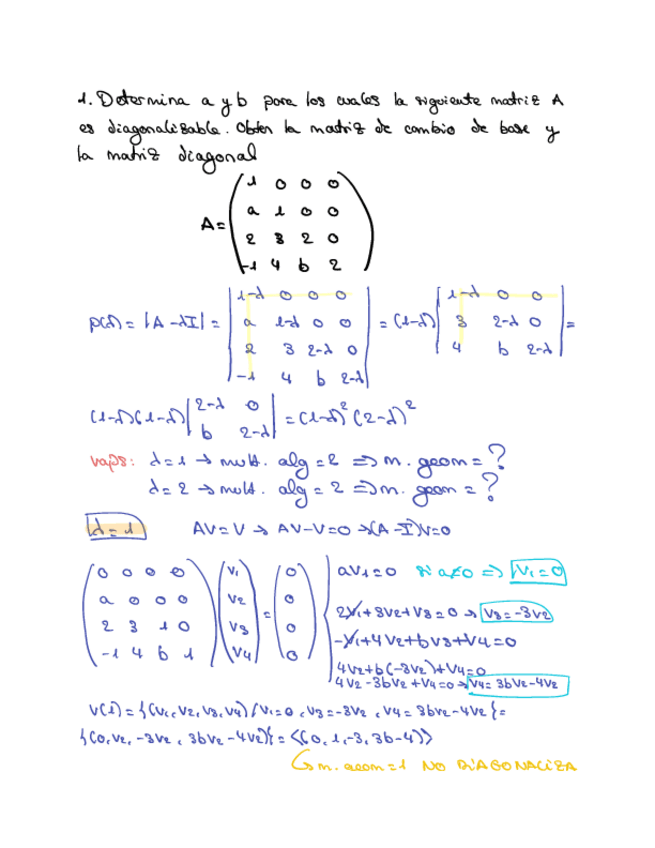 1. Determina a y b para los cuales la siguiente matriz A
es diagonalizable. Obten la matriz de cambio de base y
la matriz diagonal
A = ( 1 0 0 0
a 1 0 0
2 3 2 0
-1 4 b 2 )
p(λ) = |A - λI| = | 1-λ 0 0 0 | = (1-λ) | 1-λ 0 0 | =
| a 1-λ 0 0 | | 3 2-λ 0 |
| 2 3 2-λ 0 | | 4 b 2-λ |
| -1 4 b 2-λ |
(1-λ)(1-λ) | 2-λ 0 | = (1-λ)² (2-λ)²
| b 2-λ |
vaps: λ=1 → mult. alg = 2 => m. geom = ?
λ=2 → mult. alg = 2 => m. geom = ?
λ=1 AV=V → AV-V=0 → (A-I)V=0
( 0 0 0 0 ) ( V1 ) = ( 0 ) aV1=0 si a≠0 => V1=0
( a 0 0 0 ) ( V2 ) ( 0 ) 2V1+3V2+V3=0 → V3=-3V2
( 2 3 1 0 ) ( V3 ) ( 0 ) -V1+4V2+bV3+V4=0
( -1 4 b 1 ) ( V4 ) ( 0 ) 4V2+b(-3V2)+V4=0
4V2-3bV2+V4=0 → V4=3bV2-4V2
V(1) = {(V1,V2,V3,V4) / V1=0, V3=-3V2, V4=3bV2-4V2} =
{(0,V2,-3V2, 3bV2-4V2)} = <(0,1,-3,3b-4)>
↳ m. geom = 1 NO DIAGONALIZA